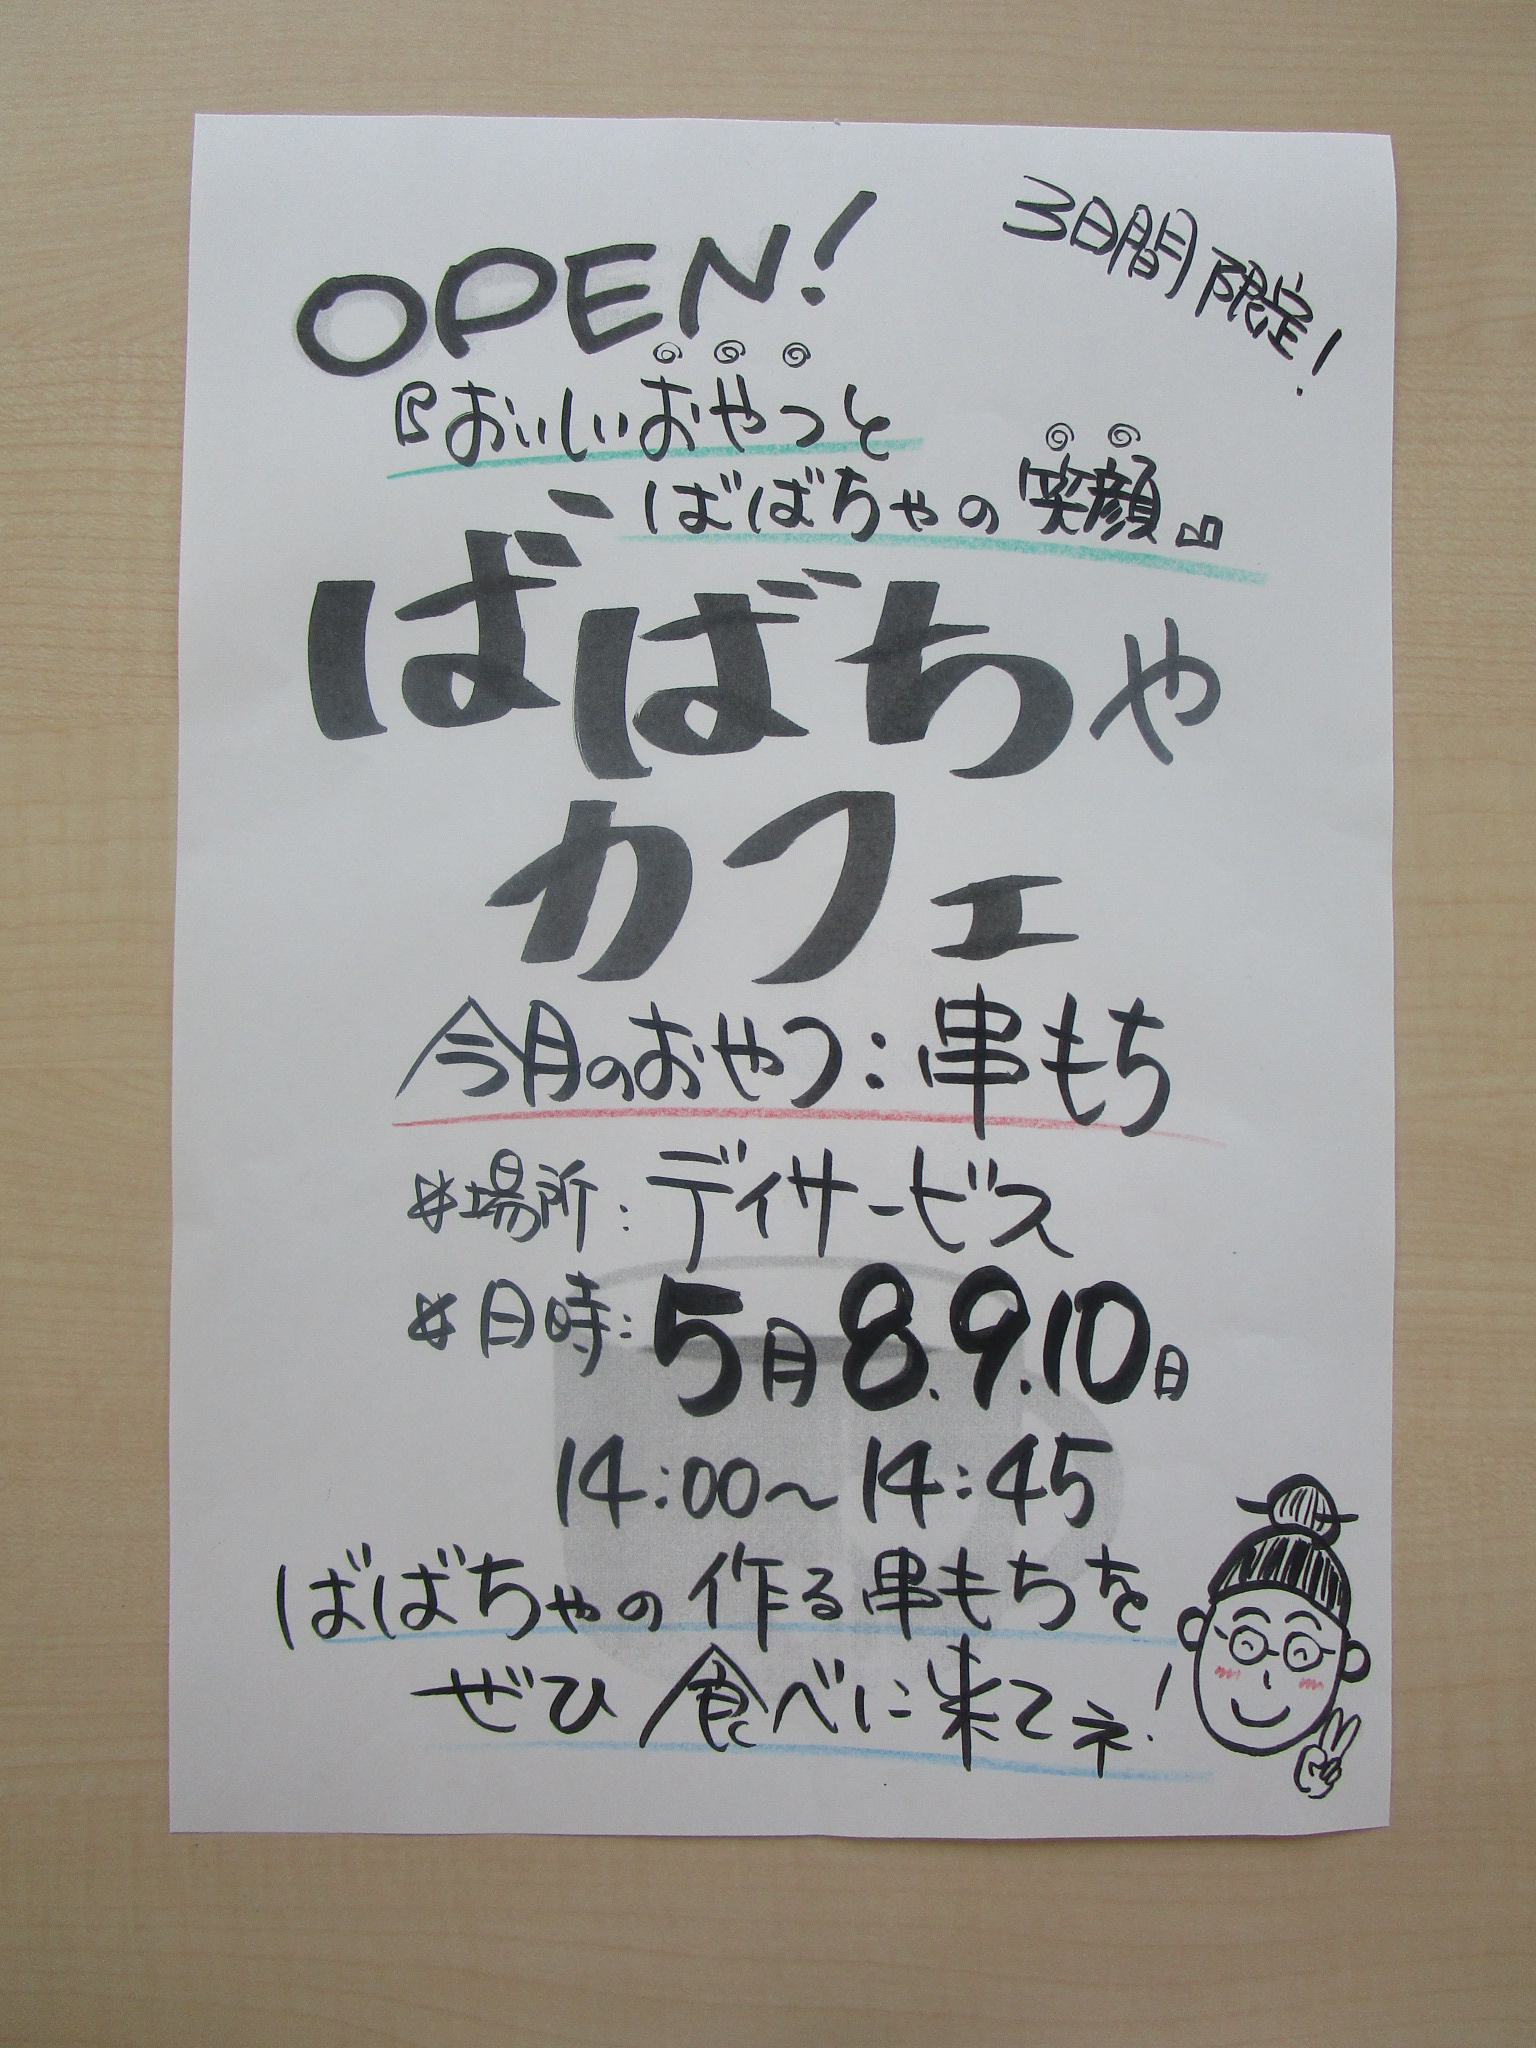 3日間限定!
OPEN!
『おいしいおやつと
ばばちゃの笑顔』
ばばちゃ
カフェ
今月のおやつ:串もち
*場所:デイサービス
*日時:5月8.9.10日
14:00~14:45
ばばちゃの作る串もちを
ぜひ食べに来てネ!